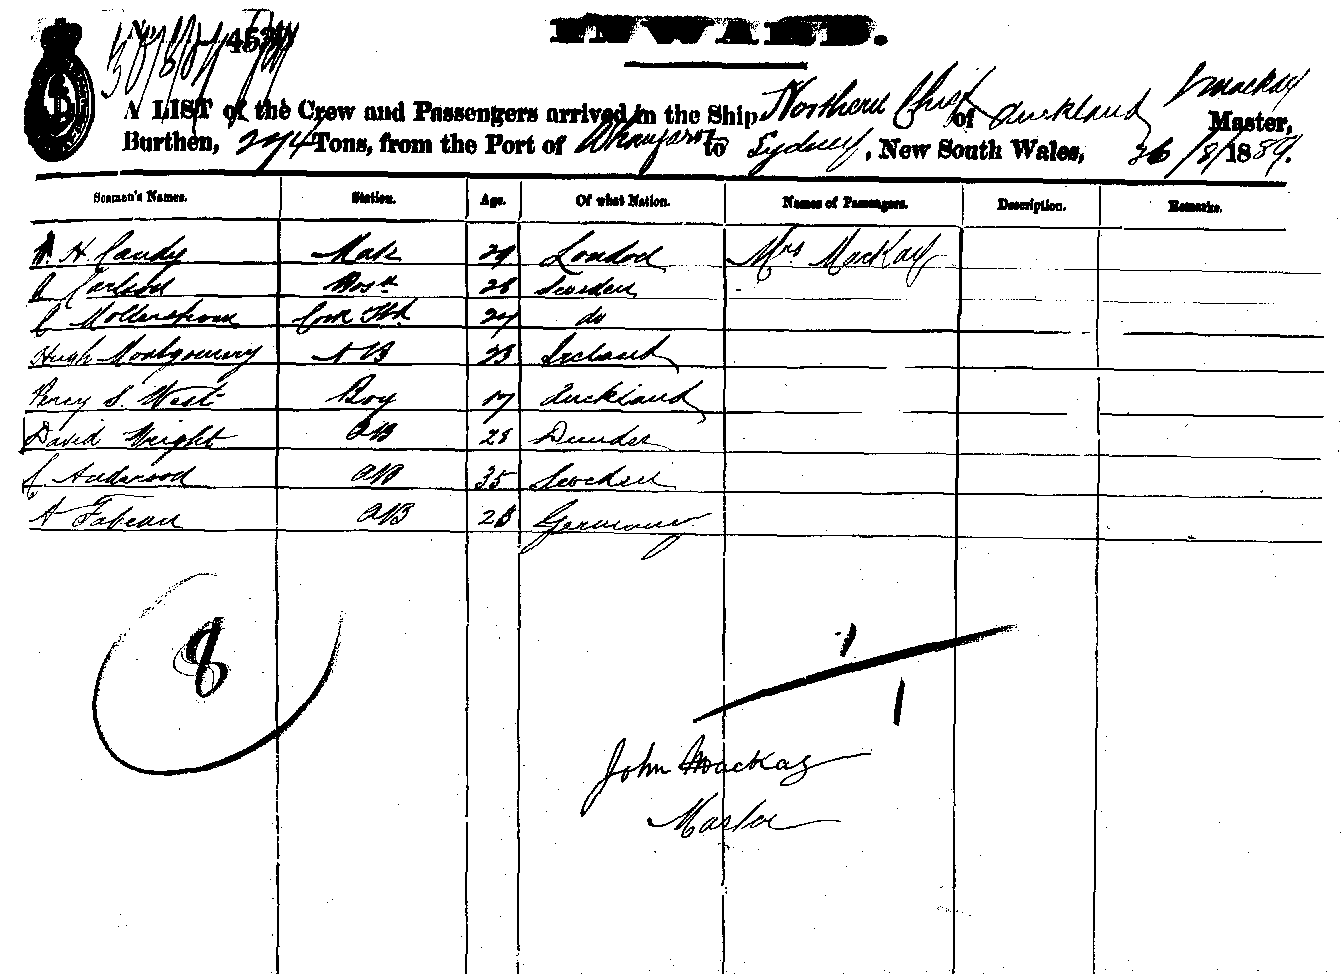 INWARD.
A LIST of the Crew and Passengers arrived in the Ship Northern Chief of Auckland J Mackay Master,
Burthen, 274 Tons, from the Port of to Sydney, New South Wales, 26/8/1889.
Seamen's Names. Station. Age. Of what Nation. Names of Passengers. Description. Remarks.
H Candy Mate 29 London Mrs MacKay
Carlson Bosn 28 Sweden
C 27 do
Hugh Montgomery AB 23 Ireland
Percy S. West Boy 17 Auckland
David Wright AB 28 Dundee
Anderson AB 35 Sweden
A Fabian AB Germany
8
1
1
John Mackay
Master